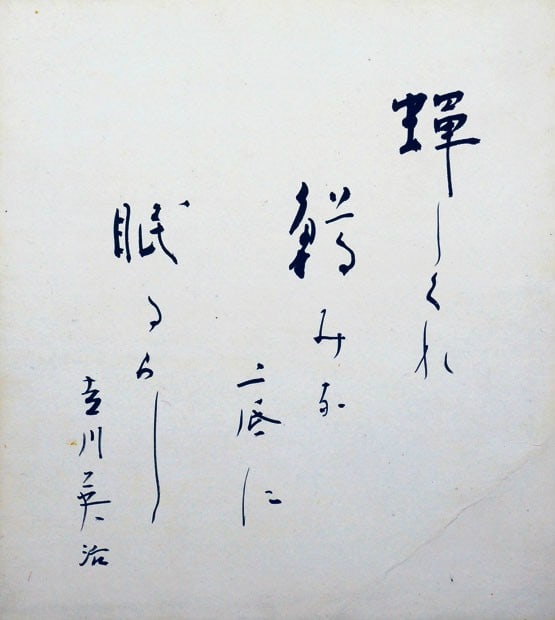 蟬しくれ
鱒みな
底に
眠るらし
吉川英治